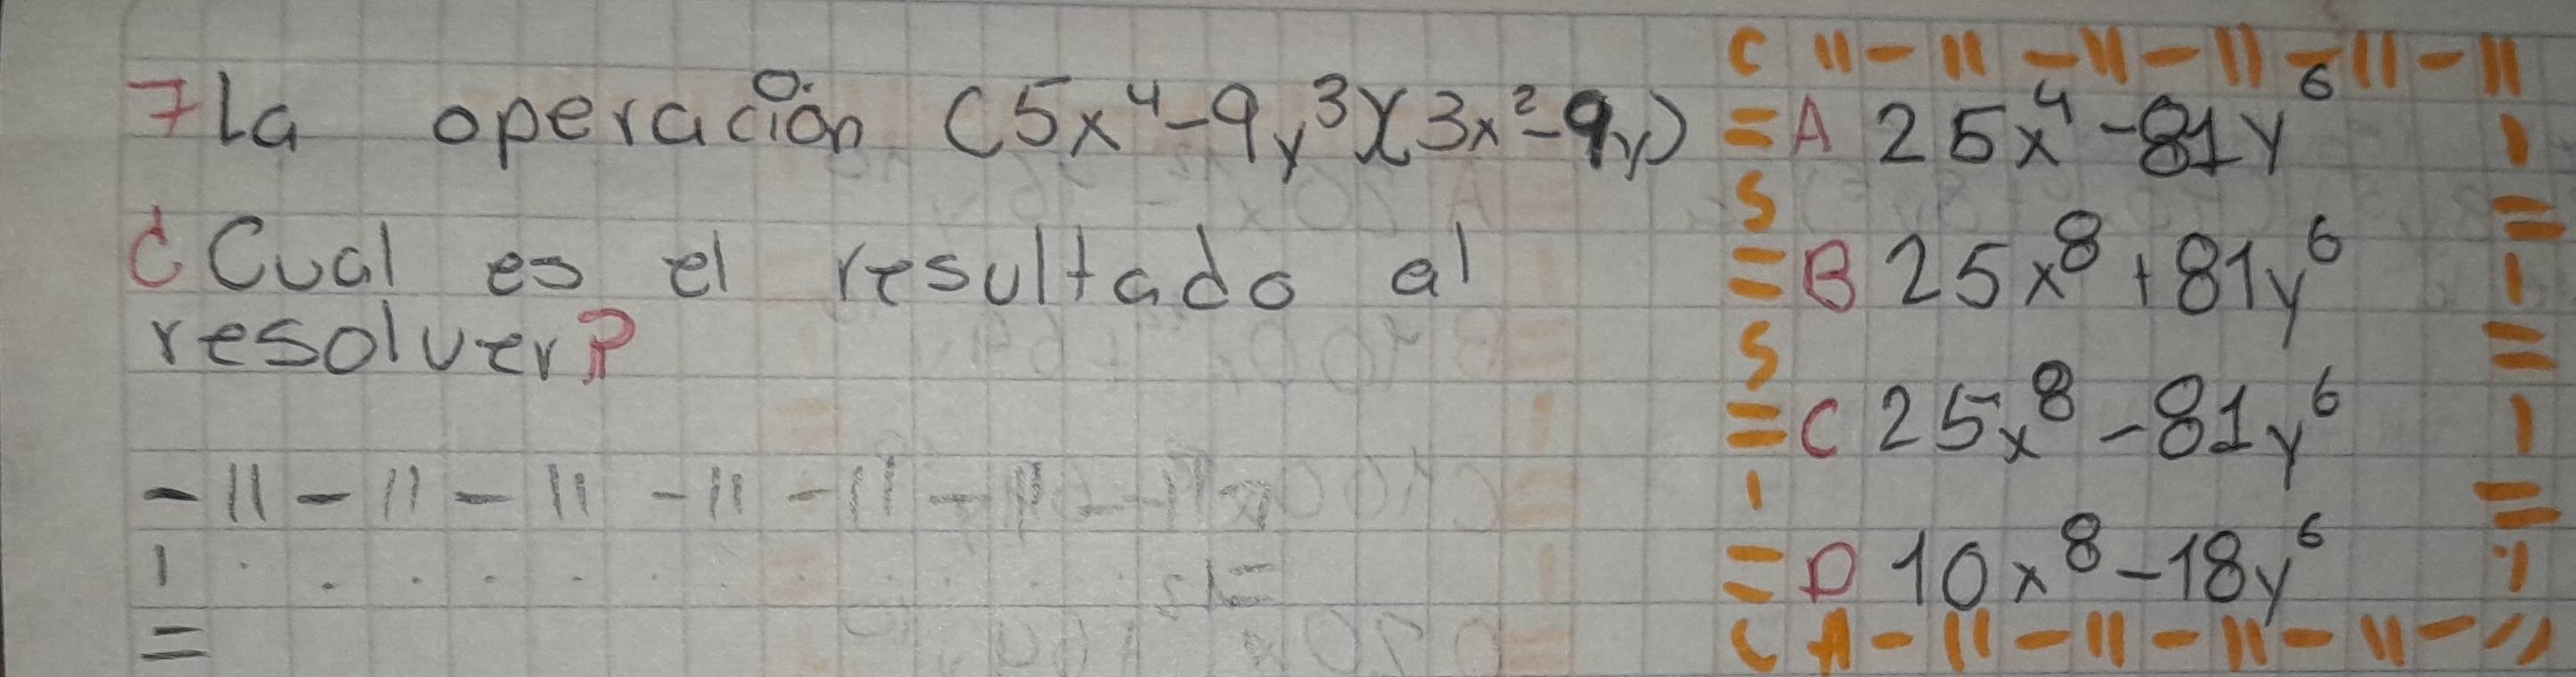 7 La operación (5x⁴-9y³)(3x²-9y)
¿Cual es el resultado al
resolver?
A 25x⁴-81y⁶
B 25x⁸+81y⁶
C 25x⁸-81y⁶
D 10x⁸-18y⁶